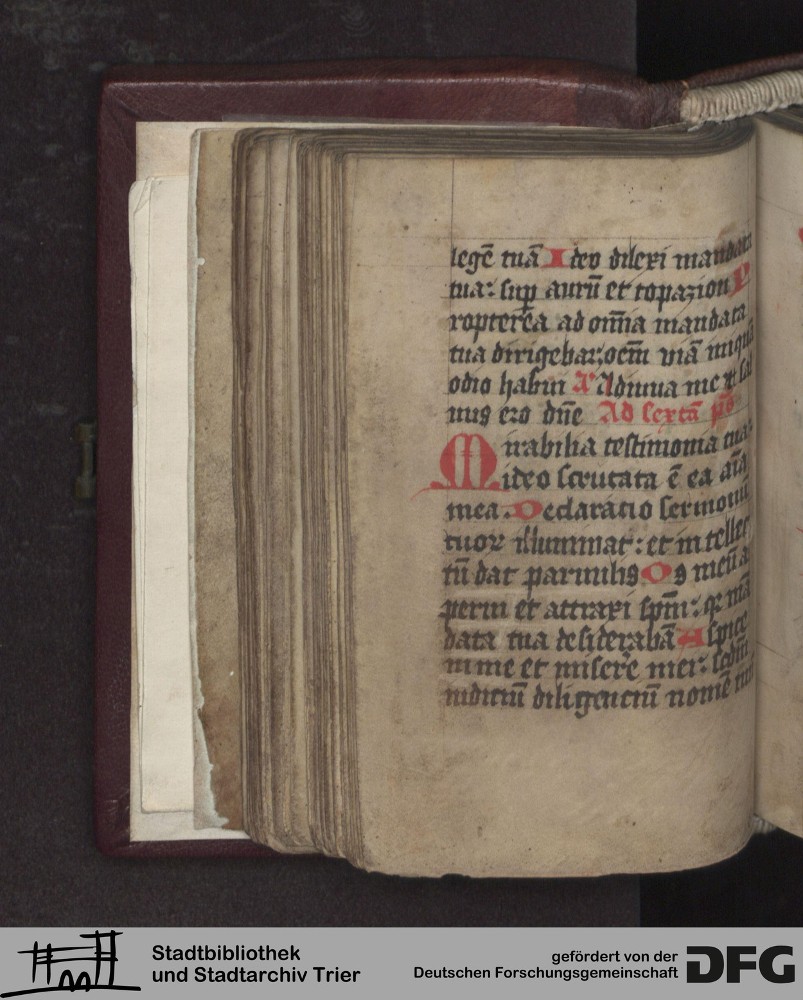 legē tuā Ideo dilexi mandata
tua: sup aurū et topazion P
ropterea ad om̄ia mandata
tua dirigebar: oem̄ viā iniquā
odio habui Adiuua me et sal
uus ero dn̄e Ad sextā ps̄
Mirabilia testimonia tua:
ideo scrutata ē ea aīa
mea. Declaratio sermonū
tuoꝝ illuminat: et intellec
tū dat paruulis Os meū a
perui et attraxi sp̄m: qꝛ mā
data tua desiderabā Aspice
in me et miserē mei: scdm̄
iudiciū diligenciū nomē tuū
Stadtbibliothek
und Stadtarchiv Trier
gefördert von der
Deutschen Forschungsgemeinschaft
DFG